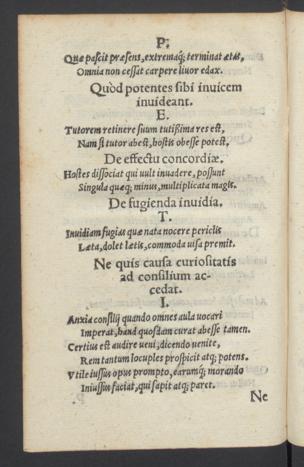 P.
Quæ pascit præsens, extremaq́; terminat ætas,
Omnia non cessat carpere liuor edax.
Quòd potentes sibi inuicem
inuideant.
E.
Tutorem retinere suum tutißima res est,
Nam si tutor abest, hostis obesse potest.
De effectu concordiæ.
Hostes dissociat qui uult inuadere, possunt
Singula quæq; minus, multiplicata magis.
De fugienda inuidia.
T.
Inuidiam fugias quæ nata nocere periclis
Læta, dolet lætis, commoda uisa premit.
Ne quis causa curiositatis
ad consilium ac-
cedat.
I.
Anxia consilij quando omnes aula uocari
Imperat, haud quosdam curat abesse tamen.
Certius est audire ueni, dicendo uenite,
Rem tantum locuples prospicit atq; potens.
Vtile iussus opus prompto, earumq́; morando
Iniussus faciat, qui sapit atq; paret.
Ne